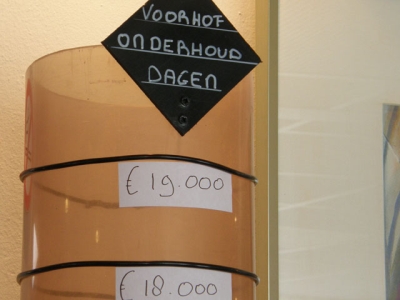 VOORHOF
ONDERHOUD
DAGEN
€ 19.000
€ 18.000